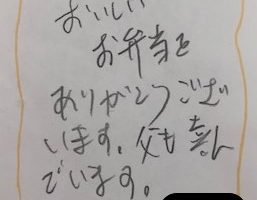 おいしい
お弁当を
ありがとうござい
います。父も喜ん
でいます。